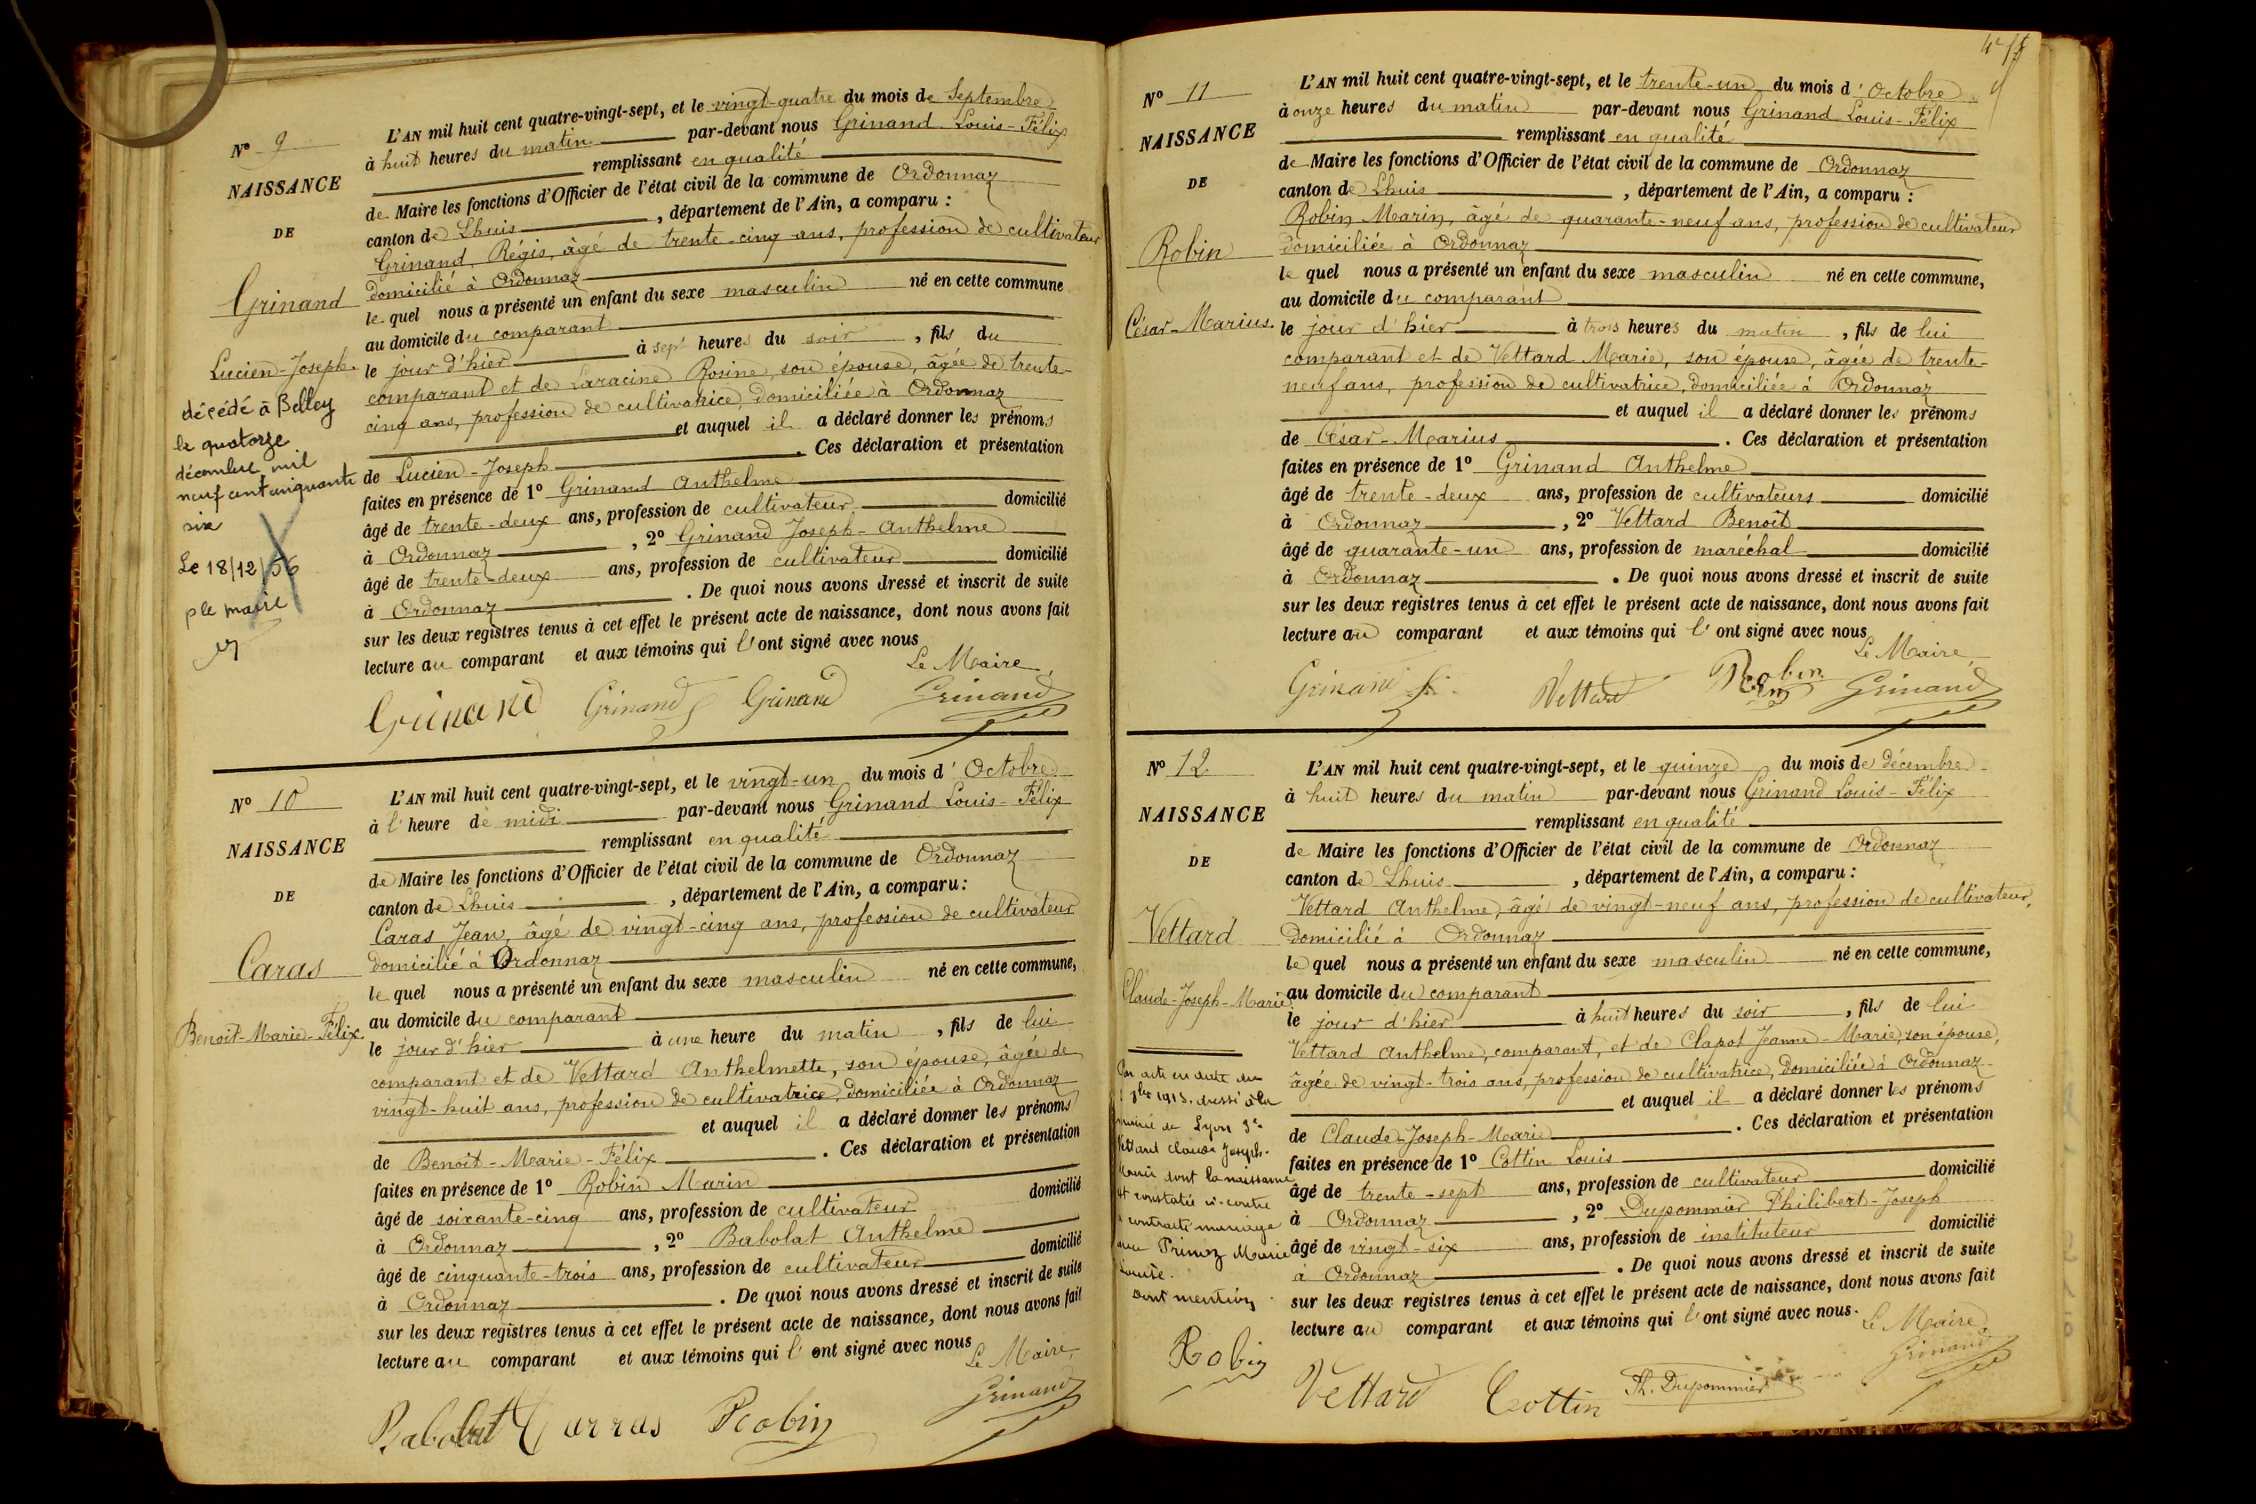 N° 9
NAISSANCE
DE
Grinand
Lucien-Joseph.
décédé à Belley
le quatorze
décembre mil
neuf cent cinquante
six
Le 18/12/56
p le maire
L'AN mil huit cent quatre-vingt-sept, et le vingt-quatre du mois de Septembre
à huit heures du matin par-devant nous Grinand Louis-Félix
remplissant en qualité
de Maire les fonctions d'Officier de l'état civil de la commune de Ordonnaz
canton de Lhuis, département de l'Ain, a comparu :
Grinand Régis, âgé de trente-cinq ans, profession de cultivateur
domicilié à Ordonnaz
le quel nous a présenté un enfant du sexe masculin né en cette commune
au domicile du comparant
le jour d'hier à sept heures du soir, fils du
comparant et de Laracine Rosine, son épouse, âgée de trente-
cinq ans, profession de cultivatrice, domiciliée à Ordonnaz
et auquel il a déclaré donner les prénoms
de Lucien-Joseph. Ces déclaration et présentation
faites en présence de 1° Grinand Anthelme
âgé de trente-deux ans, profession de cultivateur domicilié
à Ordonnaz, 2° Grinand Joseph-Anthelme
âgé de trente-deux ans, profession de cultivateur domicilié
à Ordonnaz. De quoi nous avons dressé et inscrit de suite
sur les deux registres tenus à cet effet le présent acte de naissance, dont nous avons fait
lecture au comparant et aux témoins qui l'ont signé avec nous
Le Maire
Grinand Grinand Grinand Grinand
N° 10
NAISSANCE
DE
Caras
Benoit-Marie-Félix.
L'AN mil huit cent quatre-vingt-sept, et le vingt-un du mois d'Octobre
à l'heure de midi par-devant nous Grinand Louis-Félix
remplissant en qualité
de Maire les fonctions d'Officier de l'état civil de la commune de Ordonnaz
canton de Lhuis, département de l'Ain, a comparu :
Caras Jean, âgé de vingt-cinq ans, profession de cultivateur
domicilié à Ordonnaz
le quel nous a présenté un enfant du sexe masculin né en cette commune,
au domicile du comparant
le jour d'hier à une heure du matin, fils de lui
comparant et de Vettard Anthelmette, son épouse, âgée de
vingt-huit ans, profession de cultivatrice, domiciliée à Ordonnaz
et auquel il a déclaré donner les prénoms
de Benoit-Marie-Félix. Ces déclaration et présentation
faites en présence de 1° Robin Marin
âgé de soixante-cinq ans, profession de cultivateur domicilié
à Ordonnaz, 2° Babolat Anthelme
âgé de cinquante-trois ans, profession de cultivateur domicilié
à Ordonnaz. De quoi nous avons dressé et inscrit de suite
sur les deux registres tenus à cet effet le présent acte de naissance, dont nous avons fait
lecture au comparant et aux témoins qui l'ont signé avec nous
Le Maire,
Babolat Carras Robin Grinand
N° 11
NAISSANCE
DE
Robin
César-Marius.
L'AN mil huit cent quatre-vingt-sept, et le trente-un du mois d'Octobre
à onze heures du matin par-devant nous Grinand Louis-Félix
remplissant en qualité
de Maire les fonctions d'Officier de l'état civil de la commune de Ordonnaz
canton de Lhuis, département de l'Ain, a comparu :
Robin Marin, âgé de quarante-neuf ans, profession de cultivateur
domiciliée à Ordonnaz
le quel nous a présenté un enfant du sexe masculin né en cette commune,
au domicile du comparant
le jour d'hier à trois heures du matin, fils de lui
comparant et de Vettard Marie, son épouse, âgée de trente-
neuf ans, profession de cultivatrice, domiciliée à Ordonnaz
et auquel il a déclaré donner les prénoms
de César-Marius. Ces déclaration et présentation
faites en présence de 1° Grinand Anthelme
âgé de trente-deux ans, profession de cultivateurs domicilié
à Ordonnaz, 2° Vettard Benoît
âgé de quarante-un ans, profession de maréchal domicilié
à Ordonnaz. De quoi nous avons dressé et inscrit de suite
sur les deux registres tenus à cet effet le présent acte de naissance, dont nous avons fait
lecture au comparant et aux témoins qui l'ont signé avec nous
Le Maire,
Grinand Vettard Robin Grinand
N° 12
NAISSANCE
DE
Vettard
Claude-Joseph-Marie.
Par acte en date du
1913. dressé à la
mairie de Lyon 3e
Vettard Claude Joseph-
Marie dont la naissance
est constatée ci-contre
a contracté mariage
avec Primoz Marie
Dont mention
Robin
L'AN mil huit cent quatre-vingt-sept, et le quinze du mois de décembre
à huit heures du matin par-devant nous Grinand Louis-Félix
remplissant en qualité
de Maire les fonctions d'Officier de l'état civil de la commune de Ordonnaz
canton de Lhuis, département de l'Ain, a comparu :
Vettard Anthelme, âgé de vingt-neuf ans, profession de cultivateur,
domicilié à Ordonnaz
le quel nous a présenté un enfant du sexe masculin né en cette commune,
au domicile du comparant
le jour d'hier à huit heures du soir, fils de lui
Vettard Anthelme, comparant, et de Clapot Jeanne-Marie, son épouse,
âgée de vingt-trois ans, profession de cultivatrice, domiciliée à Ordonnaz
et auquel il a déclaré donner les prénoms
de Claude-Joseph-Marie. Ces déclaration et présentation
faites en présence de 1° Cottin Louis
âgé de trente-sept ans, profession de cultivateur domicilié
à Ordonnaz, 2° Dupommier Philibert-Joseph
âgé de vingt-six ans, profession de instituteur domicilié
à Ordonnaz. De quoi nous avons dressé et inscrit de suite
sur les deux registres tenus à cet effet le présent acte de naissance, dont nous avons fait
lecture au comparant et aux témoins qui l'ont signé avec nous.
Le Maire
Vettard Cottin Ph. Dupommier Grinand